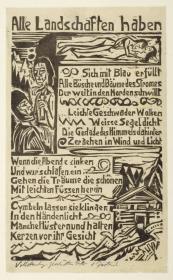 Alle Landschaften haben
Sich mit Blau erfüllt
Alle Büsche und Bäume des Stromes
Der weit in den Norden schwillt
Leichte Geschwader Wolken
Weisse Segel dicht
Die Gestade des Himmels dahinter
Zergehen in Wind und Licht
Wenn die Abende sinken
Und wir schlafen ein
Gehen die Träume die schönen
Mit leichten Füssen herein
Cymbeln lassen sie klingen
In den Händen licht
Manche flüstern und halten
Kerzen vor ihr Gesicht